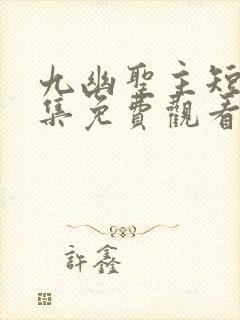 九幽聖主短
集免費觀看
許鑫